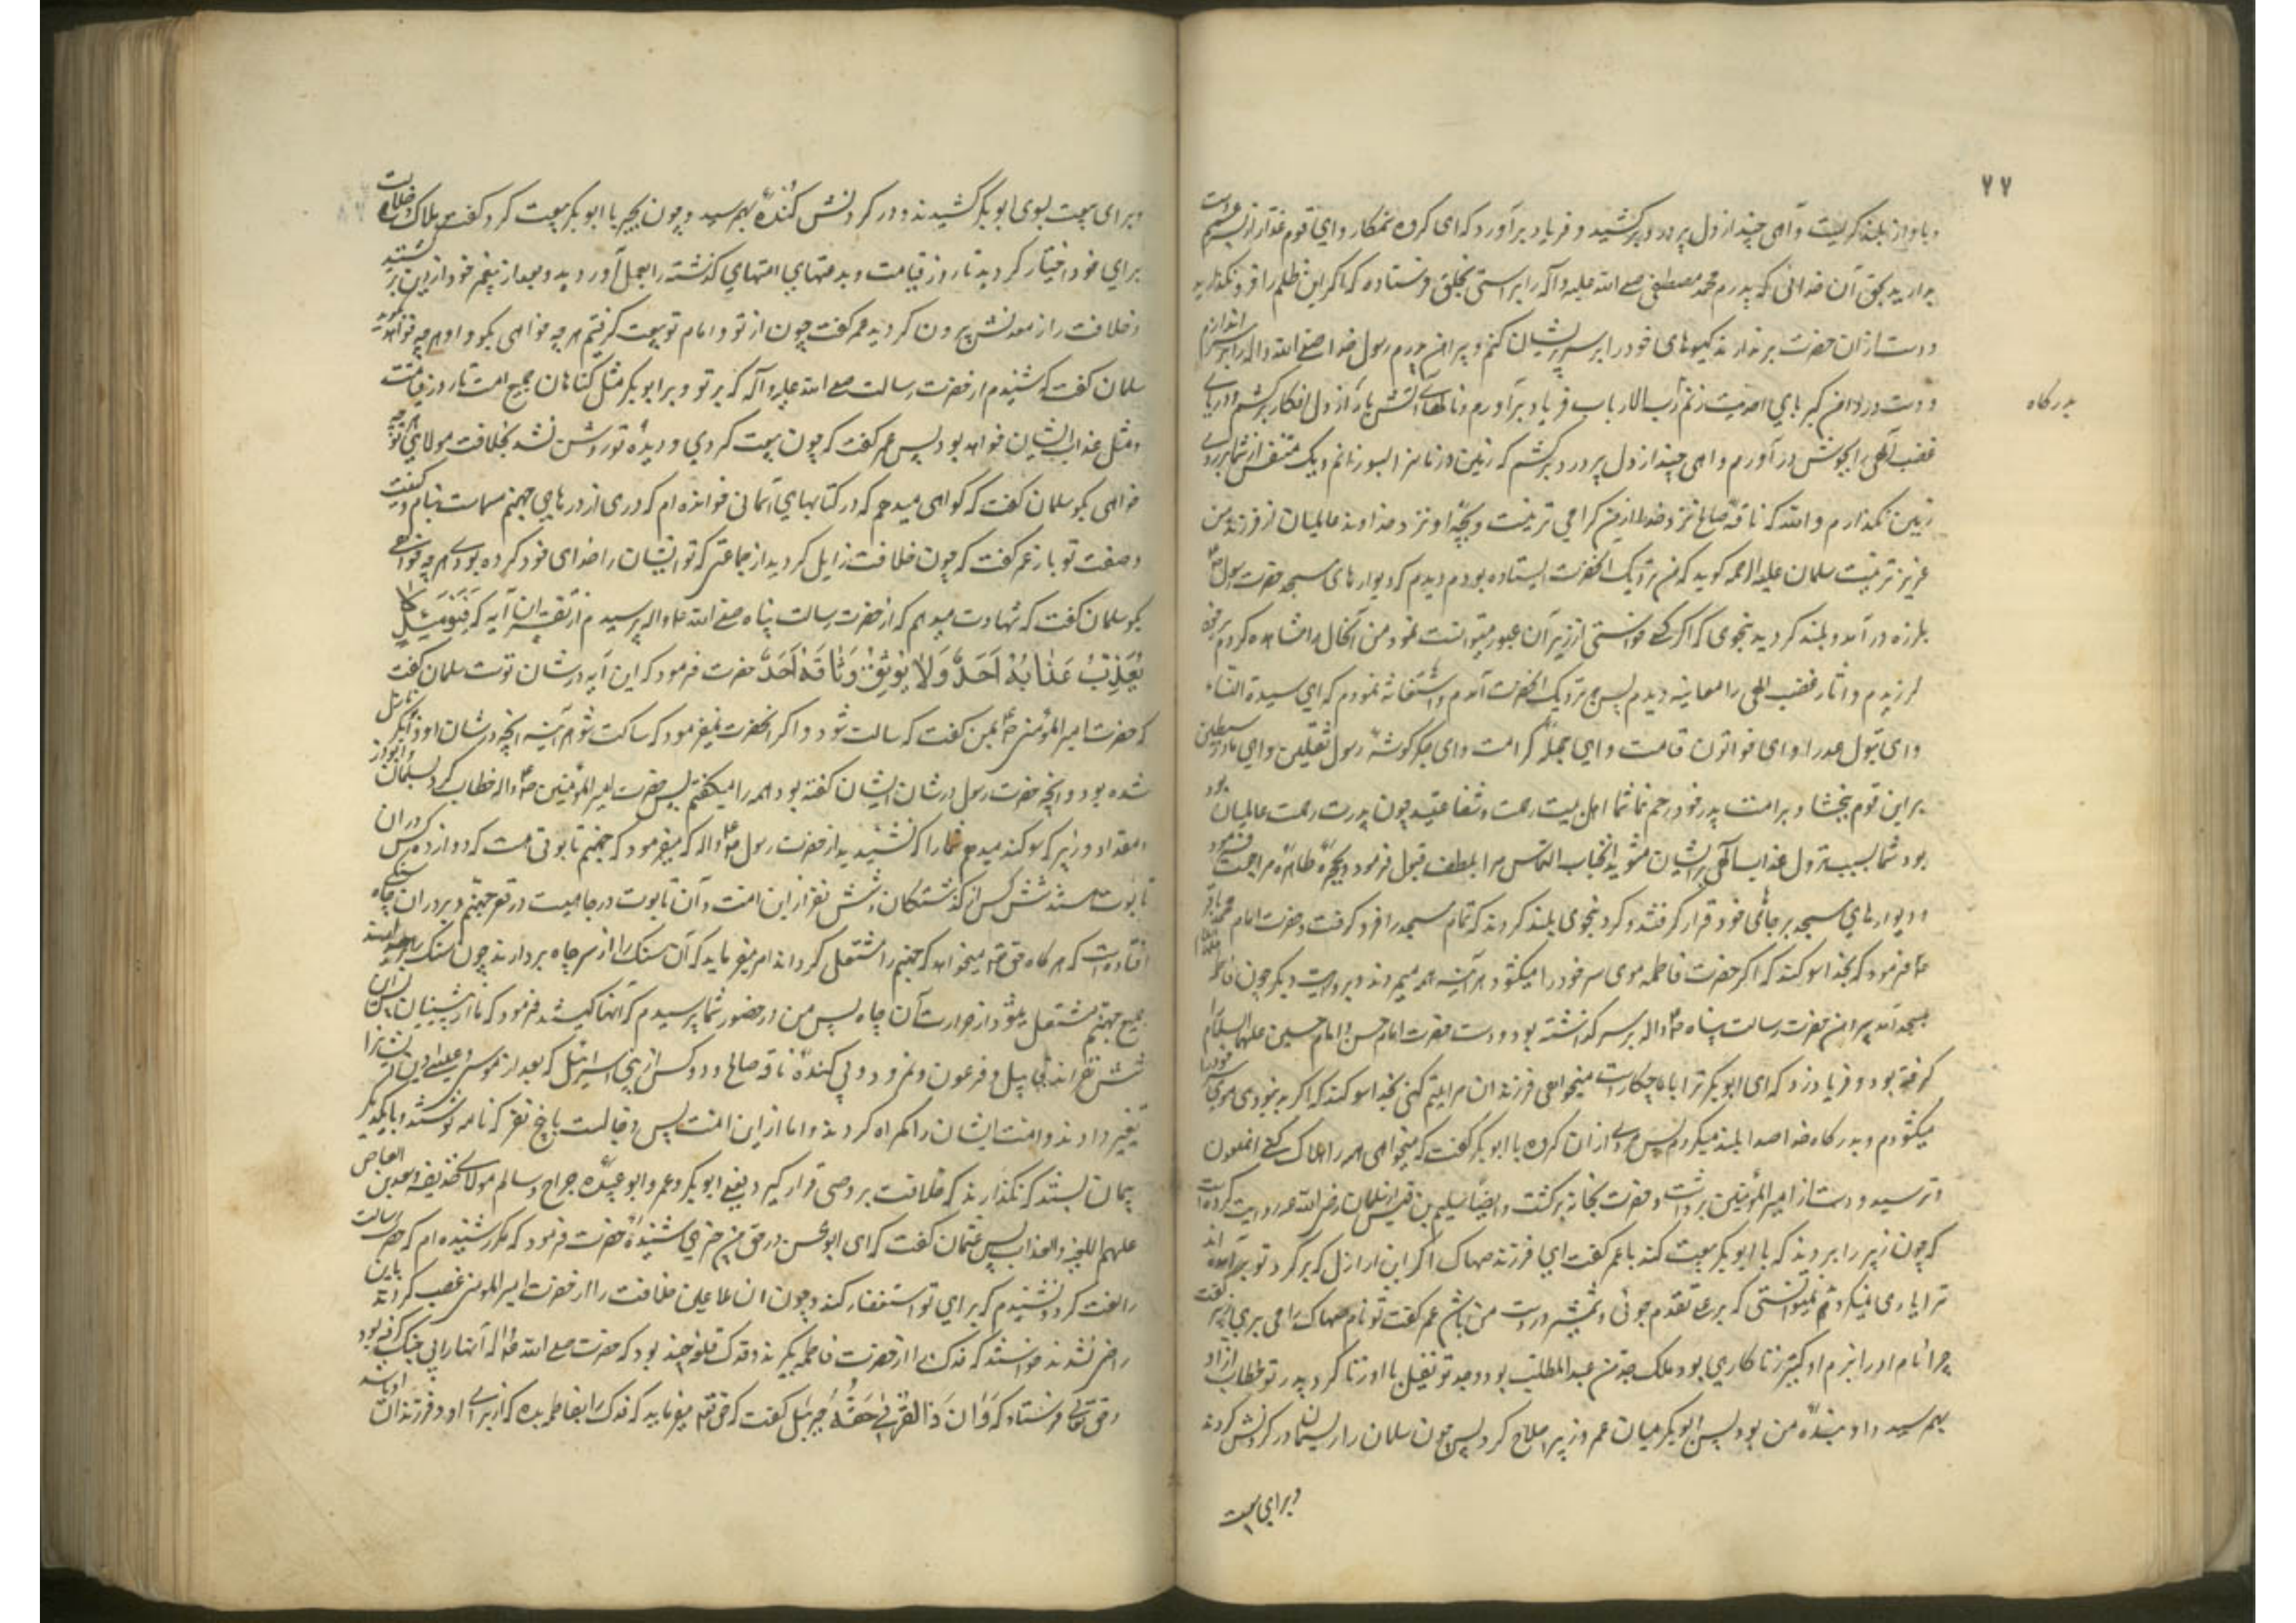 ۷۷
و باواز بلند کریست و آهی چند از دل پر درد برکشید و فریاد برآورد که ای کروه ستمکار و ای قوم غدار از پسرعم دست
بردارید بحق آن خدائی که پدرم محمد مصطفی صلی الله علیه واله را براستی بخلق فرستاده که اکر این ظلم را فرو نکذارید
و دست ازان حضرت برندارید کیسوهای خود را بر سر پریشان کنم و پیراهن پدرم رسول خدا صلی الله واله را بر سر اندازم
و دست در دامن کبریای احدیت زنم رب الارباب فریاد برآورم و نالهای آتش بار از دل افکار برکشم و دریای
بدرکاه
غضب الهی را بجوش درآورم و اهی چند از دل پر درد برکشم که زمین و زمانرا بسوزانم و یک متنفس از شما بر روی
زمین نکذارم والله که ناقه صالح نزد خدا از من کرامی تر نیست و بچه او نزد خداوند عالمیان از فرزند من
عزیزتر نیست سلمان علیه الرحمه کوید که من نزدیک انحضرت ایستاده بودم دیدم که دیوارهای مسجد حضرت رسول
بلرزه درآمد و بلند کردید بنحوی که اکر کسی خواستی از زیر آن عبور میتوانست نمود من آنحال را مشاهده کردم برخود
لرزیدم و اثار غضب الهی را معاینه دیدم پس نزدیک انحضرت آمدم و استغاثه نمودم که ای سیدة النساء
و ای بتول عذرا و ای خواتون قیامت و ای کرامت و ای جکرکوشه رسول ثقلین و ای مادر سبطین
بر این قوم ببخشا و بر امت پدر خود رحم نما شما اهل بیت رحمت و شفاعتید چون پدرت رحمت عالمیان بود
بود شما سبب نزول عذاب الهی بر ایشان مشوید انجناب التماس مرا بلطف قبول فرمود و بحجره طاهره مراجعت فرمود
و دیوارهای مسجد بر جای خود قرار کرفتند و کرد بنحوی بلند کردند که تمام مسجد را فرو کرفت و حضرت امام محمد باقر
فرمود که بخدا سوکند که اکر حضرت فاطمه موی سر خود را میکشود هر آینه همه میمردند و بروایت دیکر چون فاطمه
بمسجد آمد پیراهن حضرت رسالت پناه واله بر سر کذاشته بود و دست حضرت امام حسن و امام حسین علیهما السلام را
کرفته بود و فریاد زد که ای ابوبکر ترا با ما چکارست میخواهی فرزندان مرا یتیم کنی بخدا سوکند که اکر بد نبودی موی خود را
میکشودم و بدرکاه خدا صدا بلند میکردم پس مردی ازان کروه با ابوبکر کفت که میخواهی همه را هلاک کنی انملعون
ترسید و دست از امیرالمؤمنین برداشت و حضرت بخانه برکشت و ایضا سلیم بن قیس از سلمان رضی الله عنه روایت کرده است
که چون زبیر را بردند که با ابوبکر بیعت کند با عمر کفت ای فرزند صهاک اکر این اراذل که بر کرد تو برآمده اند
ترا یاری نمیکردند نمیتوانستی که بر من تقدم جوئی و شمشیر در دست من باشد عمر کفت تو نام صهاک را می بری زبیر کفت
چرا نام او را نبرم او کنیز زناکاری بود ملک جد من عبدالمطلب بود و جد تو نفیل با او زنا کرد پدر تو خطاب ازاو
بهم رسید و او بنده من بود پس ابوبکر میان عمر و زبیر اصلاح کرد پس چون سلمان را ریسمان در کردنش کردند
و برای بیعت
و برای بیعت بسوی ابوبکر کشیدند و در کردنش کنده بهم رسید و چون بجبر با ابوبکر بیعت کرد کفت هلاک و ضلالت
برای خود اختیار کردید تا روز قیامت و بدعتهای امتهای کذشته را بعمل آوردید و بعد از پیغمبر خود از دین برکشتید
و خلافت را از معدنش بیرون کردید عمر کفت چون از تو و امام تو بیعت کرفتم هر چه خواهی بکو و او هر چه خواهد بکوید
سلمان کفت که شنیدم از حضرت رسالت صلی الله علیه وآله که بر تو و بر ابوبکر مثل کناهان جمیع امت تا روز قیامت
و مثل عذاب ایشان خواهد بود پس عمر کفت که چون بیعت کردی و دیده تو روشن نشد بخلافت مولای تو هر چه
خواهی بکو سلمان کفت که کواهی میدهم که در کتابهای آسمانی خوانده ام که دری از درهای جهنم مسماست بنام و کنیت
و صفت تو باز عمر کفت که چون خلافت زایل کردید از جماعتی که تو ایشان را خدای خود کرده بودی هر چه خواهی
بکو سلمان کفت که شهادت میدهم که از حضرت رسالت پناه صلی الله علیه واله پرسیدم از تفسیر این آیه که فَیَوْمَئِذٍ لا
یُعَذِّبُ عَذابَهُ اَحَدٌ وَلا یُوثِقُ وَثاقَهُ اَحَدٌ حضرت فرمود که این آیه در شان توست سلمان کفت
که حضرت امیرالمؤمنین بمن کفت که ساکت شو و اکر انحضرت نمیفرمود که ساکت شو هر آینه انچه در شان او و ابوبکر نازل
شده بود و انچه حضرت رسول در شان ایشان کفته بود همه را میکفتم پس حضرت امیرالمؤمنین خطاب کرد بسلمان و ابوذر
و مقداد و زبیر که سوکند میدهم شما را که نشنیدید از حضرت رسول واله که میفرمود که جهنم تابوتی هست که دوازده کس دران
تابوت هستند شش کس از کذشتکان و شش نفر از این امت و آن تابوت در چاهیست در قعر جهنم و بر در ان چاه سنکی
افتاده است که هر کاه حق تعالی میخواهد که جهنم را مشتعل کرداند امر میفرماید که آن سنک را از سر چاه بردارند چون سنک را بردارند
جمیع جهنم مشتعل میشود از حرارت آن چاه پس من در حضور شما پرسیدم که آنها کیستند فرمود که اما از پیشینیان پس آن
شش نفر اند قابیل و فرعون و نمرود و پی کننده ناقه صالح و دو کس از بنی اسرائیل که بعد از موسی و عیسی دین ایشانرا
تغییر دادند و امت ایشان را کمراه کردند و اما از این امت پس دجالست با پنج نفر که نامه نوشتند و با یکدیکر
پیمان بستند که نکذارند که خلافت بر وصی قرار کیرد یعنی ابوبکر و عمر و ابو عبیده جراح و سالم مولای حذیفه و سعد بن العاص
علیهم اللعنه والعذاب پس عثمان کفت که ای ابوالحسن در حق من چیزی شنیده حضرت فرمود که مکرر شنیده ام که حضرت رسالت
ترا لعنت کرد و نشنیدم که برای تو استغفار کند و چون ان ملاعین خلافت را از حضرت امیرالمؤمنین غصب کردند باین
راضی نشدند خواستند که فدک را از حضرت فاطمه بکیرند و فدک قلعه چند بود که حضرت صلی الله علیه واله آنها را بی جنک کرفته بود
و حق تعالی فرستاد که وَآتِ ذَا القُرْبی حَقَّهُ جبرئیل کفت که حق تعالی میفرماید که فدک را بفاطمه بده که از برای او و فرزندان او باشد